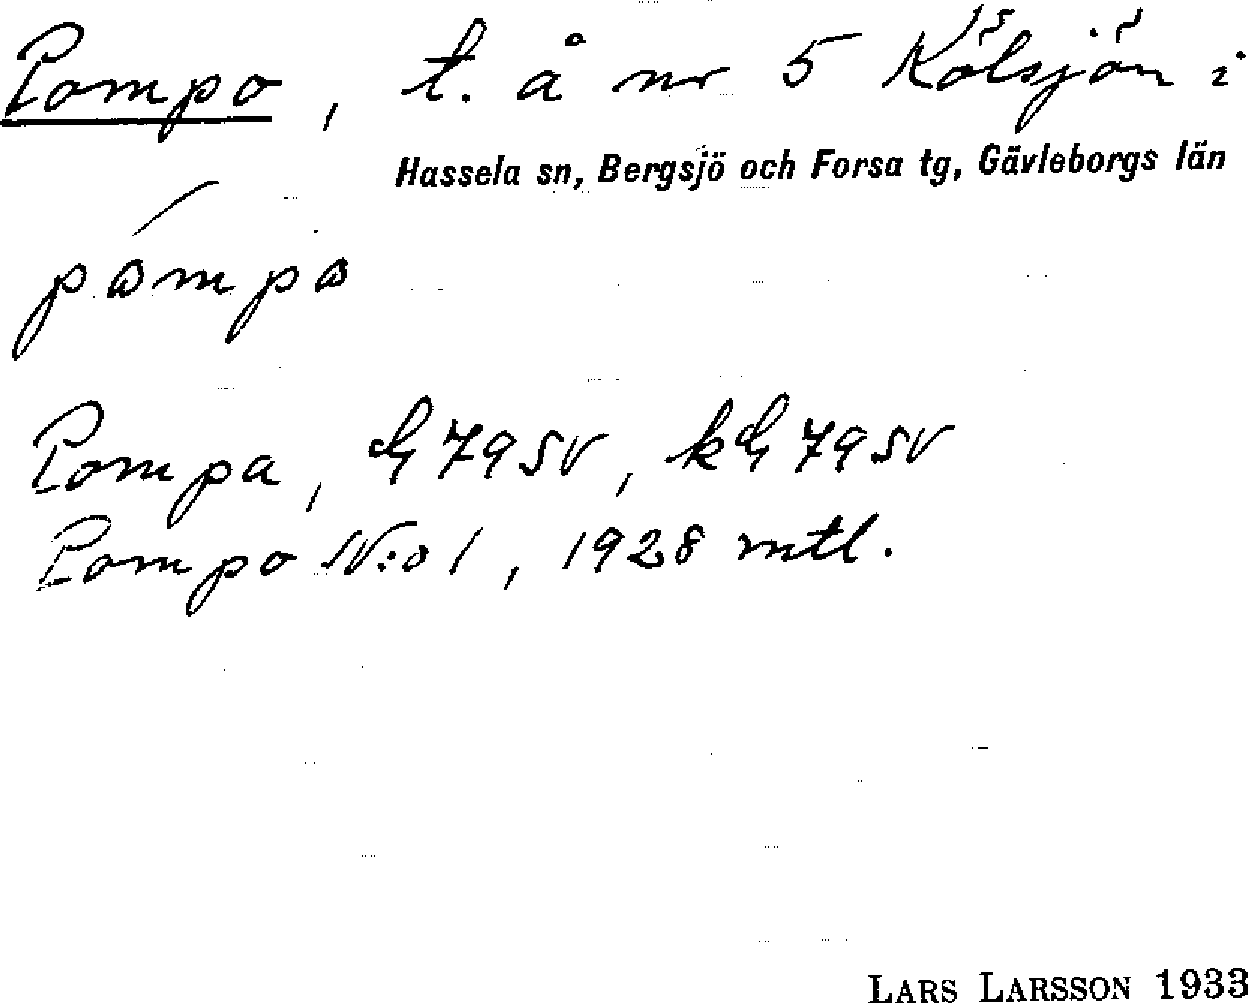 Pompo, t. å nr 5 Kölsjön i
Hassela sn, Bergsjö och Forsa tg, Gävleborgs län
pompo
Pompa, 79 SV, 79 SV
Pompo N:o 1, 1928 mtl.
LARS LARSSON 1933